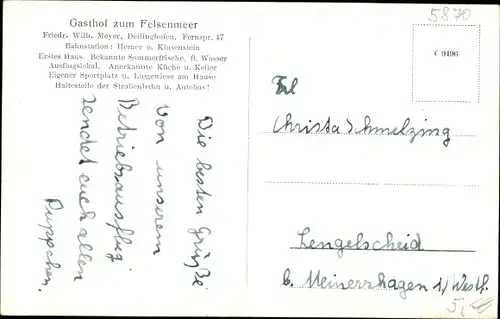 Gasthof zum Felsenmeer
Friedr. Wilh. Meyer, Deilinghofen, Fernspr. 47
Bahnstation: Hemer u. Klusenstein
Erstes Haus. Bekannte Sommerfrische, fl. Wasser
Ausflugslokal. Anerkannte Küche u. Keller
Eigener Sportplatz u. Liegewiese am Hause
Haltestelle der Straßenbahn u. Autobus!
Die besten Grüße
von unserem
Betriebsausflug
sendet euch allen
Puppchen.
5870
C 9496
Frl
Christa Schmelzing
Lengelscheid
b. Meinerzhagen i/ Westf.
5,-